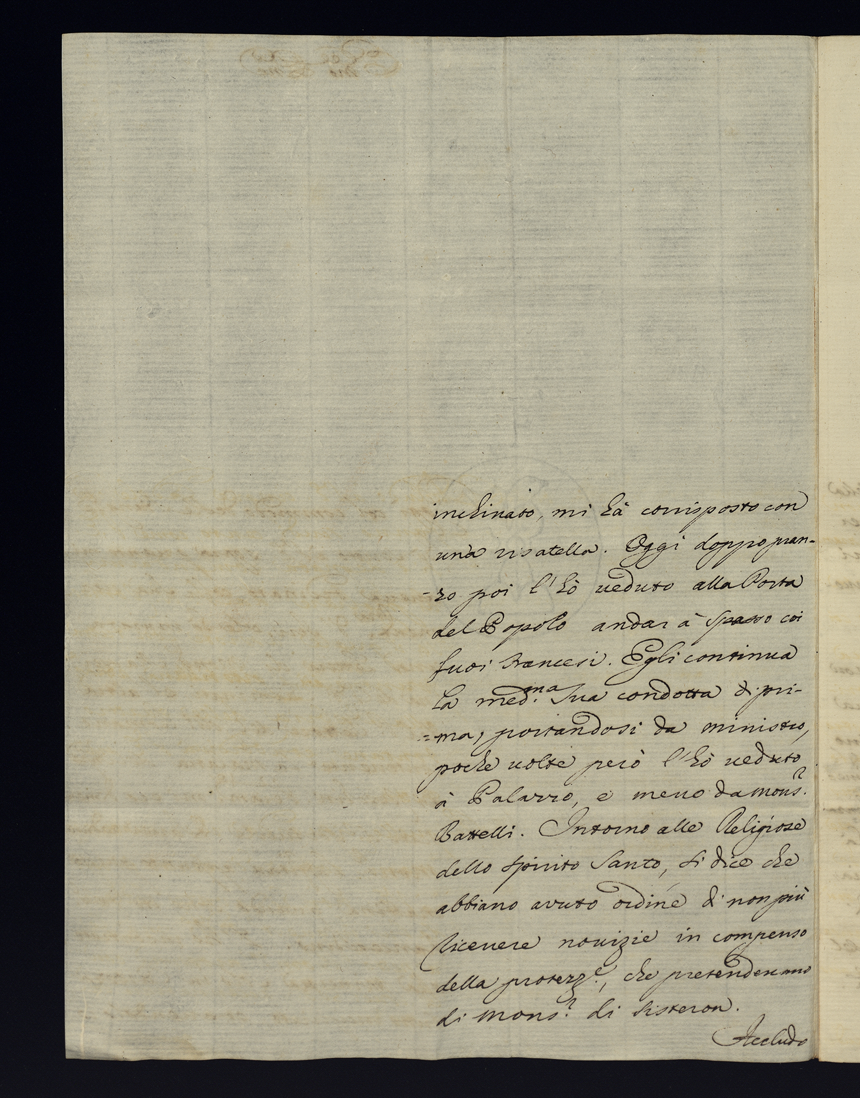 inchinato, mi hà corrisposto con
una risatella. Oggi doppo pran-
-zo poi l'hò veduto alla Porta
del Popolo andar à spasso coi
suoi Francesi. Egli continua
la med.ma sua condotta di pri-
=ma, portandosi da ministro,
poche volte però l'hò veduto
à Palazzo, e meno da Mons.r
Battelli. Intorno alle Religiose
dello Spirito Santo, si dice che
abbiano avuto ordine di non più
ricevere novizie in compenso
della protezz.e, che pretendevano
di Mons.r di Sisteron.
Accludo